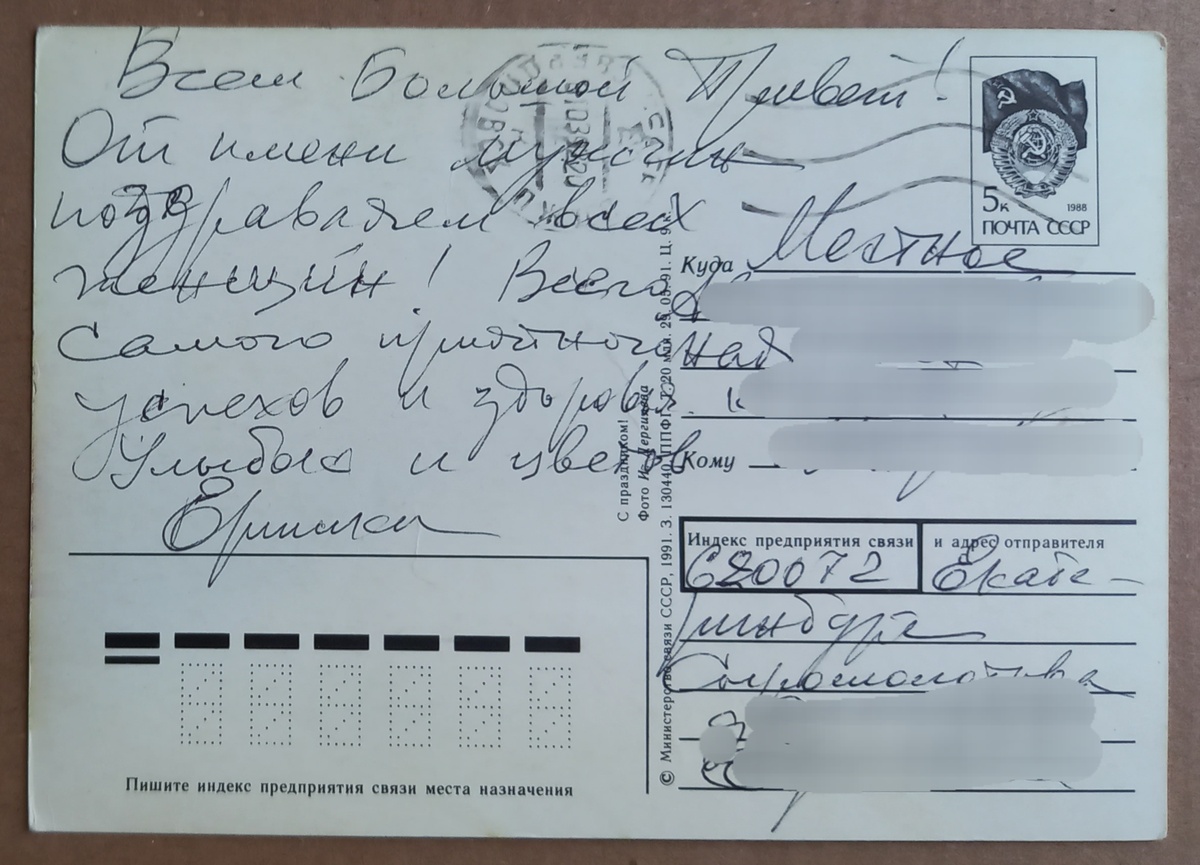 Всем большой Привет!
От имени мужчин
поздравляем всех
женщин! Всего
самого приятного
успехов и здоровья
Улыбок и цветов
5к 1988
ПОЧТА СССР
Куда Местное
Кому
С праздником!
Фото И. Дергилёва
© Министерство связи СССР, 1991. З. 130440. ППФГ. Т. 20 млн. 29.05.91. Ц.
Индекс предприятия связи и адрес отправителя
620072 Екате-
ринбург
Сыромолотова
Пишите индекс предприятия связи места назначения